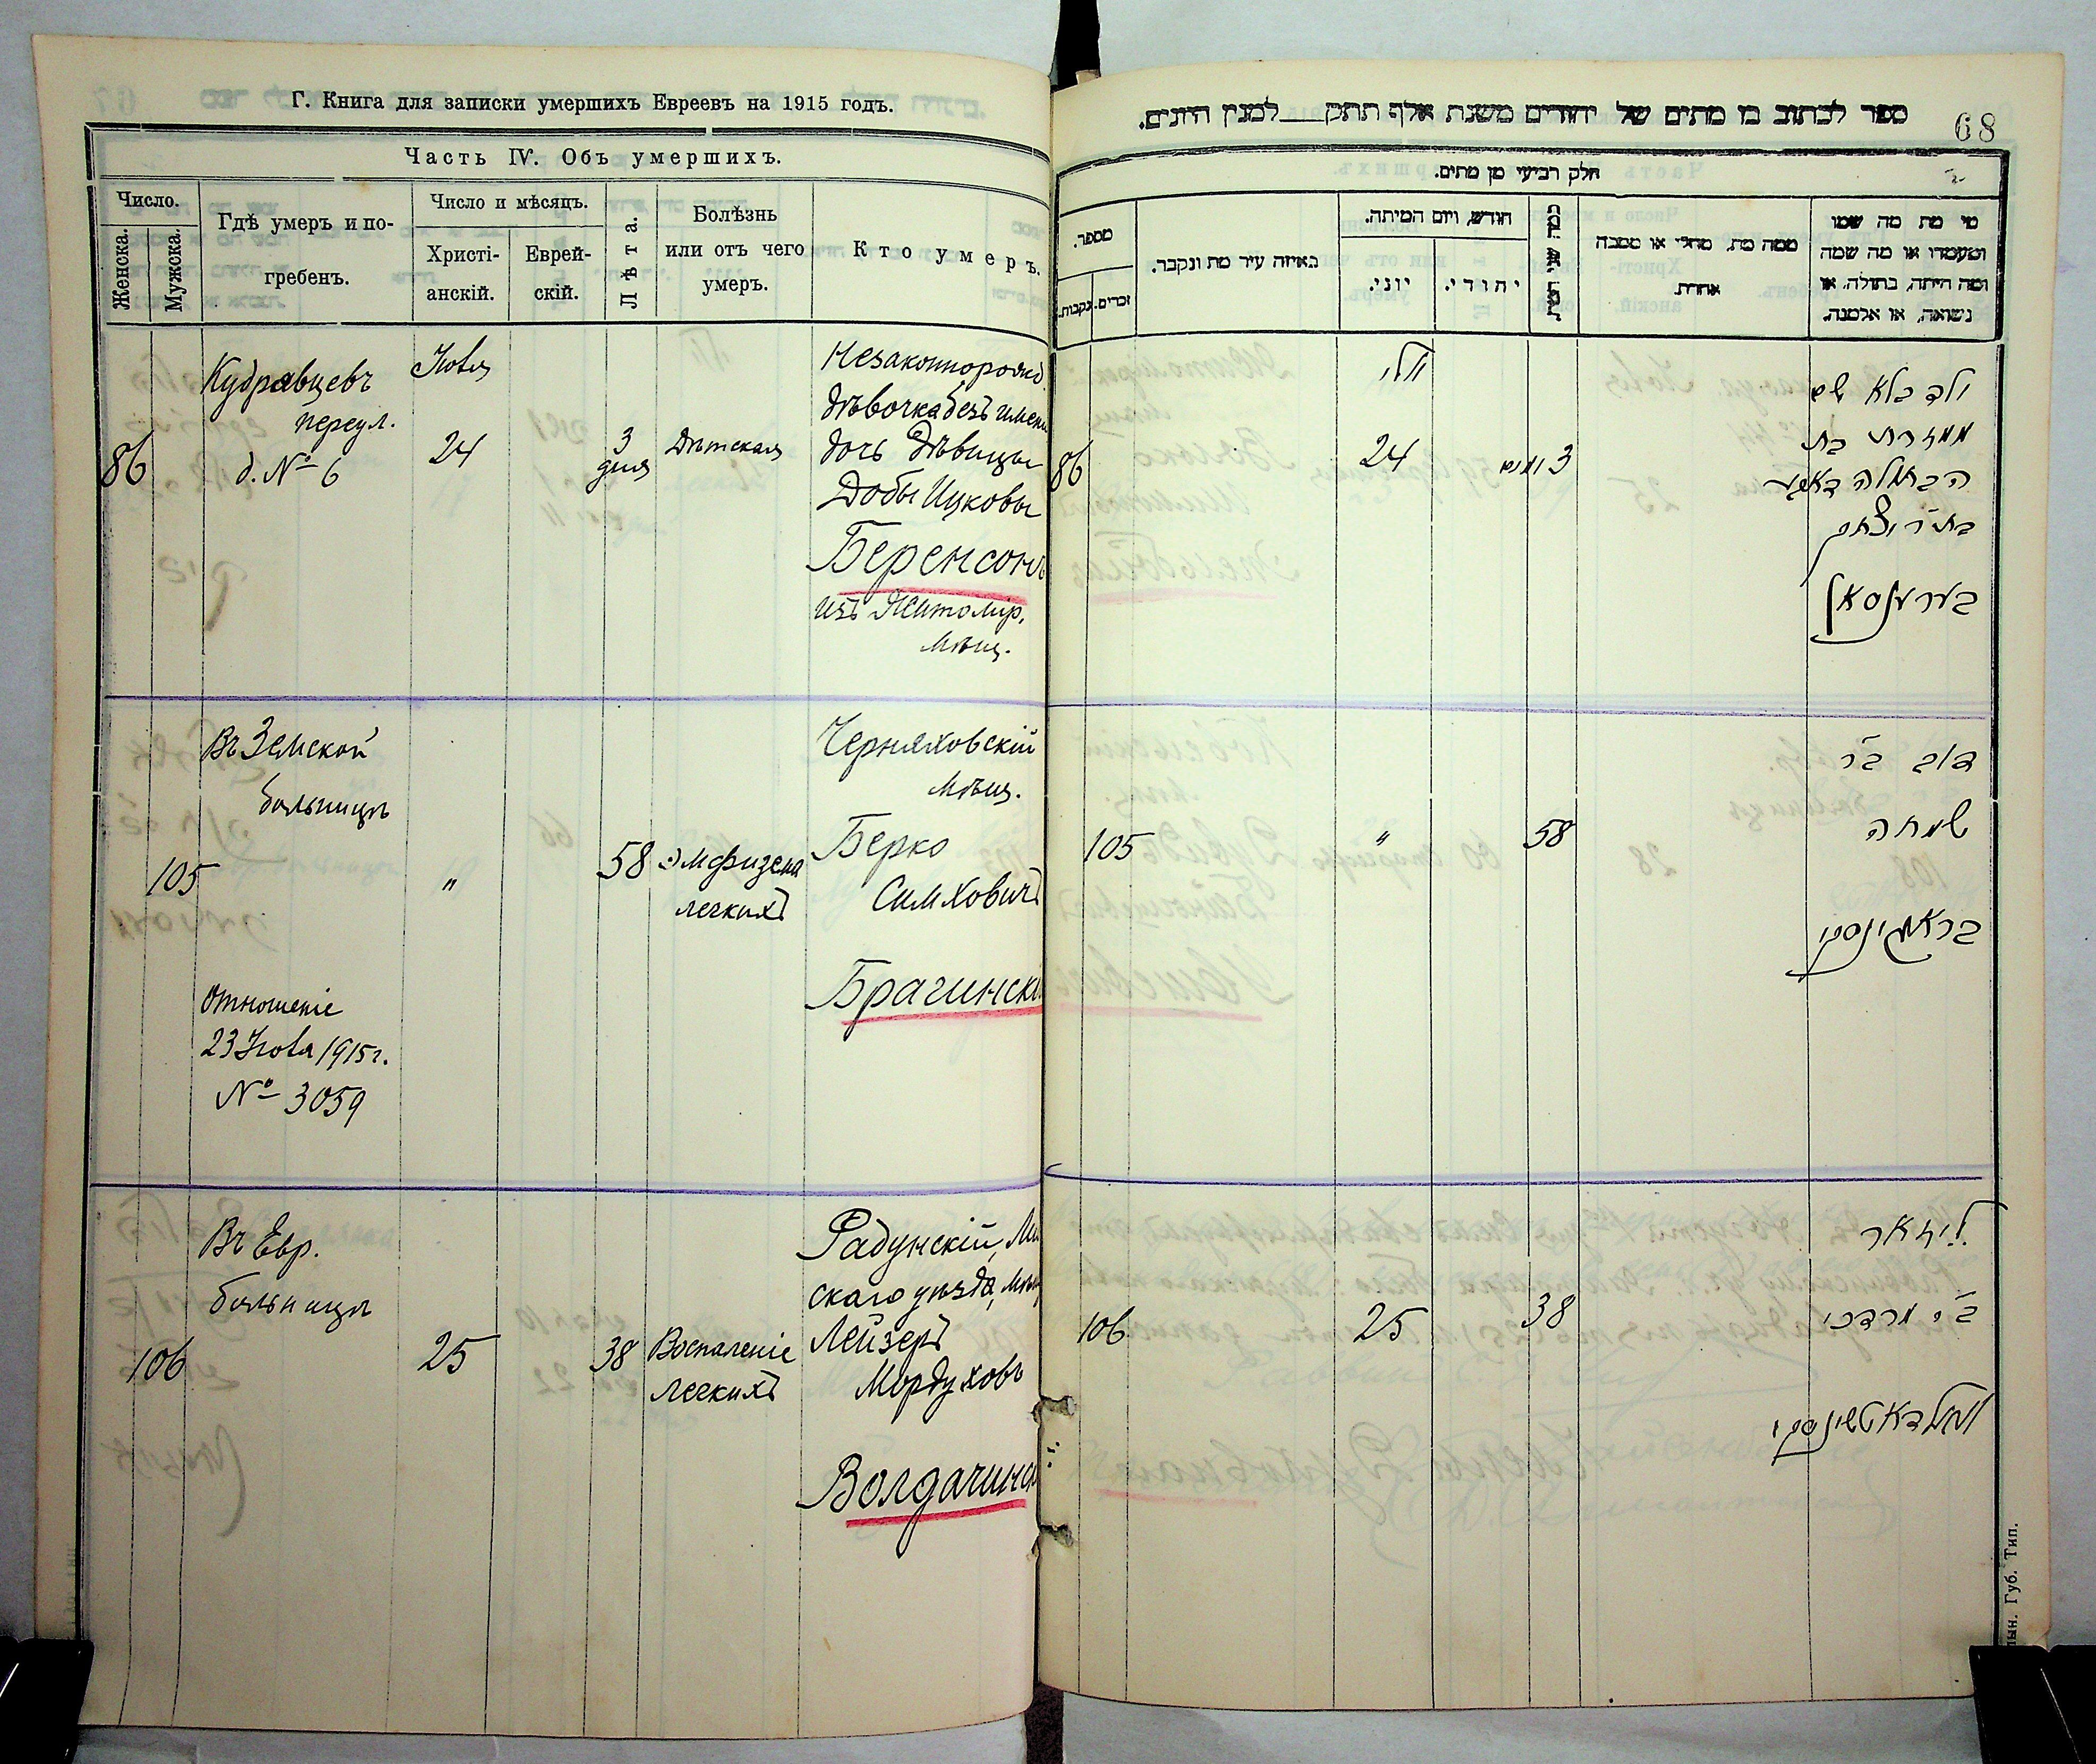 Г. Книга для записки умершихъ Евреевъ на 1915 годъ.
Часть IV. Объ умершихъ.
Число.
Женска.
Мужска.
Гдѣ умеръ и по-
гребенъ.
Число и мѣсяцъ.
Христі-
анскій.
Еврей-
скій.
Лѣта.
Болѣзнь
или отъ чего
умеръ.
Кто умеръ.
86
Кудравцевъ
переул.
д. № 6
Ноября
24
3
дня
Дѣтская
Незаконнорожд.
дѣвочка безъ имени
дочь Дѣвицы
Добы Ицковы
Беренсонъ
изъ Житомір.
мѣщ.
105
Въ Земской
больницѣ
Отношеніе
23 Ноя 1915 г.
№ 3059
"
58
Эмфизема
легкихъ
Черняховскій
мѣщ.
Берко
Симховичъ
Брагинскі
106
Въ Евр.
больницѣ
25
38
Воспаленіе
легкихъ
Радунскій,
скаго уѣзда, мѣщ
Лейзеръ
Мордуховъ
Волдачинс
ספר לכתוב בו מתים של יהודים משנת אלף תתק למנין היונים.
68
חלק רביעי מן מתים.
מספר.
זכרים.
נקבות.
באיזה עיר מת ונקבר.
חודש, ויום המיתה.
יוני.
יהודי.
ממה מת, מחלי או מסבה
אחרת.
מי מת מה שמו
ומעמדו או מה שמה
ומה היתה, בתולה, או
נשואה, או אלמנה.
86
24
3 ימים
ולד בלא שם
ממזרת בת
הבתולה דאבע
בת ר' יצחק
בערענסאן
105
"
58
דוב ב"ר
שמחה
בראגינסקי
106
25
38
ליזאר
ב"ר מרדכי
וואלדאטשינסקי
Губ. Тип.